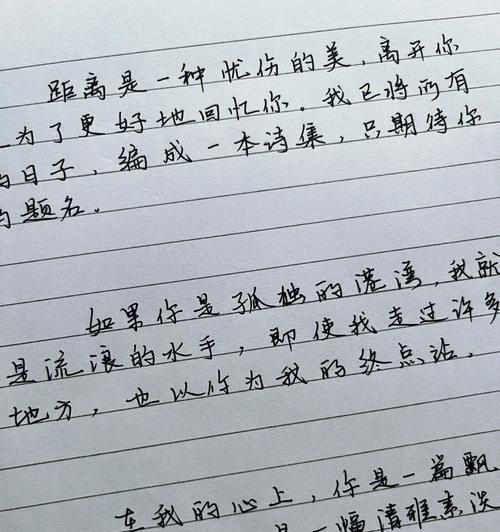 距离是一种忧伤的美，离开你
为了更好地回忆你。我已将所有
的日子，编成一本诗集，只期待你
的题名。
如果你是孤独的港湾，我就
是流浪的水手，即使我走过许多
地方，也以你为我的终点站。
在我的心上，你是一篇飘
是一幅清雅素淡